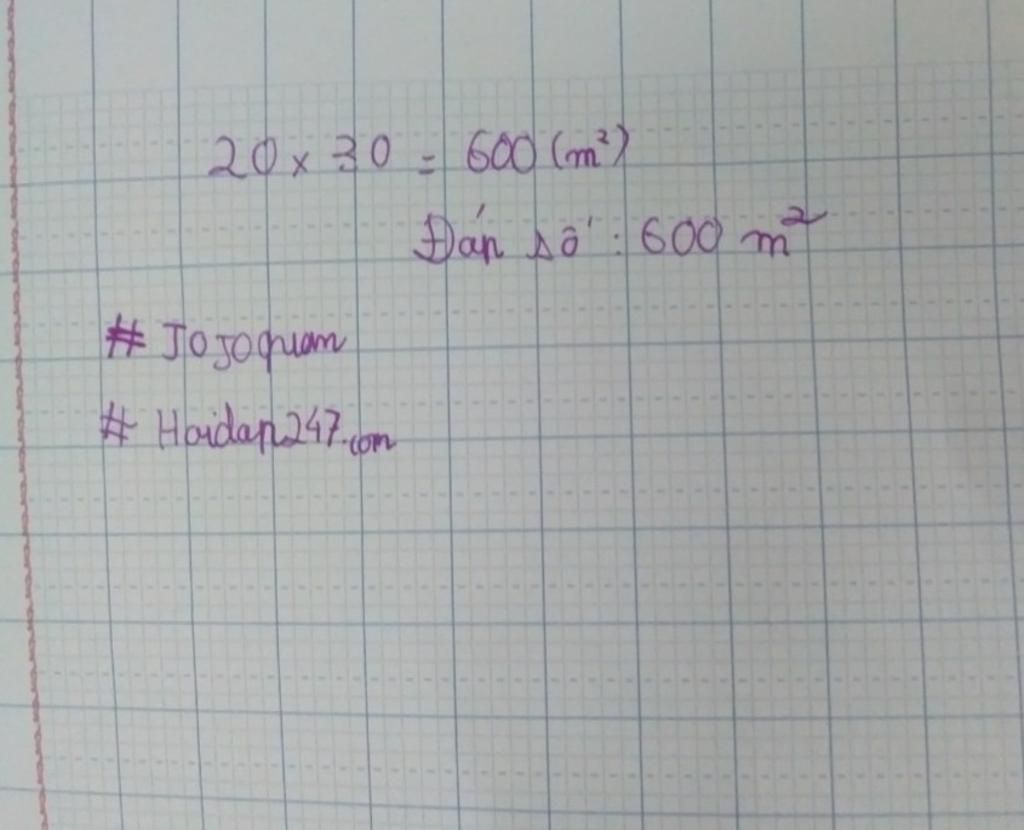 20 x 30 = 600 (m²)
Đáp số : 600 m²
# Jojoquam
# Hoidap247.com